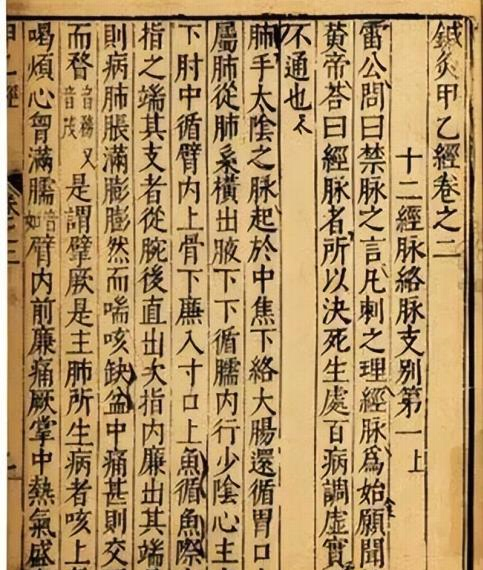 鍼灸甲乙經卷之二
十二經脉絡脉支別第一上
雷公問曰禁脉之言凡刺之理經脉爲始願聞
黃帝答曰經脉者所以決死生處百病調虛實
不通也
肺手太陰之脉起於中焦下絡大腸還循胃口
屬肺從肺系橫出腋下下循臑内行少陰心主
下肘中循臂内上骨下廉入寸口上魚循魚際
指之端其支者從腕後直出次指内廉出其端
則病肺脹滿膨膨然而喘咳缺盆中痛甚則交
而瞀音務又音茂是謂臂厥是主肺所生病者咳上
喝煩心胷滿臑音如臂内前廉痛厥掌中熱氣盛
甲乙經